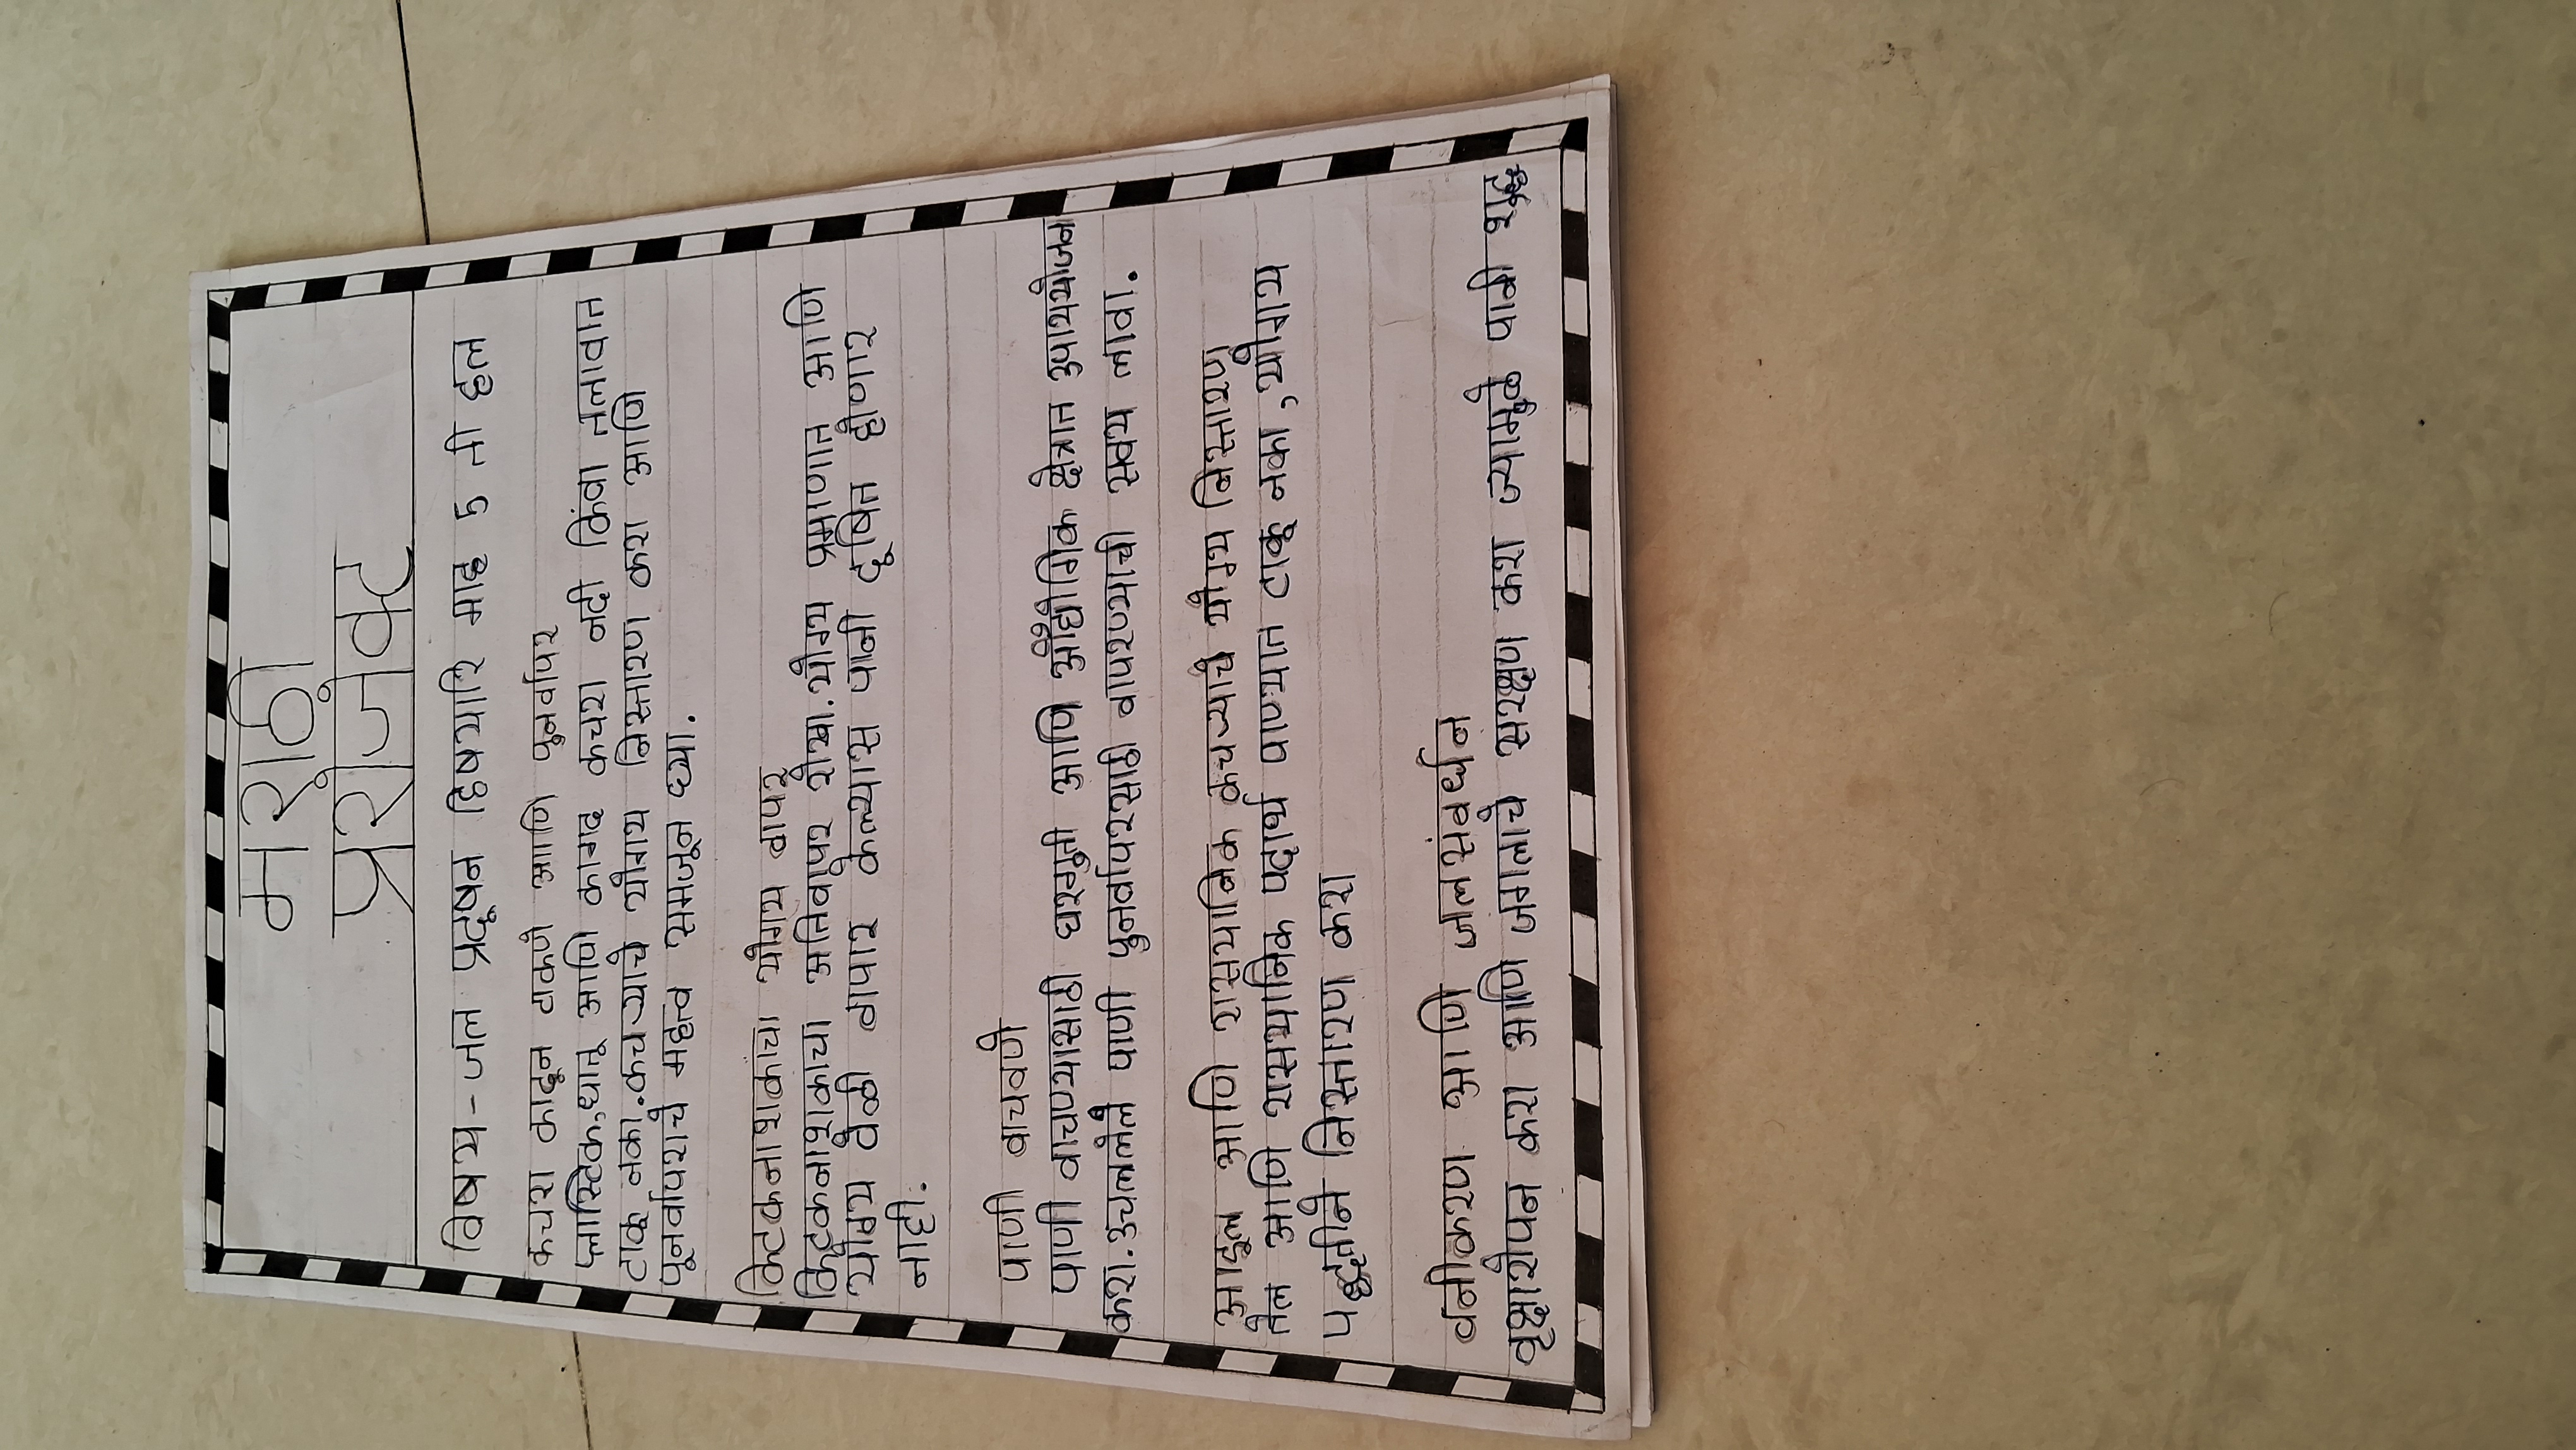 मराठी
प्ररोजेक्ट
विषय - जल प्रदूषन विषयारि माह 5 ती हल
कचरा काढून टाकणे आाणि पुनर्वापर
प्लास्टिक,धातू आणि कागद कचरा नदी किंवा तलावात
टाकू नका.कचऱ्याचे योगय निस्तारण करा आणि
पूनर्वापराचे महत्व समजून घ्या.
किटकनाशकांचा योगय वापर
किटकनाशकाचा अतिवापर रोखा.योग्य प्रमाणात आणि
योग्य वेळी वापार केल्यास पानी दूषित होणार
नाही.
पाणी वाचवणे
पाणी वाचण्यासाठी घरगुती आणि औद्योगिक क्षेत्रात उपाययोजना
करा.उचललेले पाणी पुनर्वापरसाठी वापरण्याची सवय लावा.
आइल आणि रासयानिक कचऱ्याचे योग्य निस्तारण
तेल आणि रासयानिक पदार्थ पाण्यात टाकू नका,योगय
पद्धतीने निस्तारण करा
वनीकरण आणि जलसंवर्धन
वृक्षारोपन करा आणि जंगलाचे सरक्षण करा ज्यामुळे पानी शुद्ध